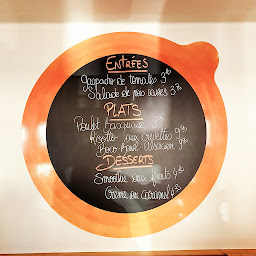 ENTRÉES
Gaspacho de tomates 3
Salade de pois casses 3
PLATS
Poulet Basquaise 9
Risotto aux crevettes 9
Boco Bowl Alsacien 9
DESSERTS
Smoothie aux fruits 4
Crème au caramel